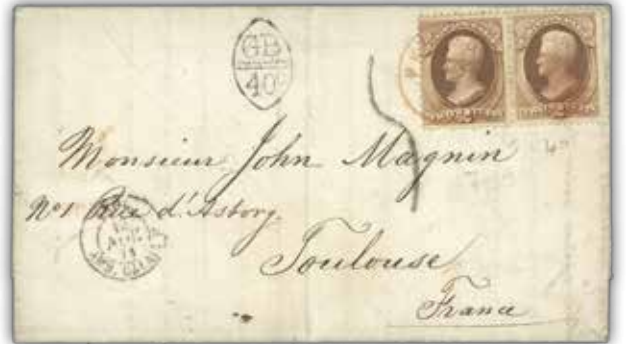 GB
40c
Monsieur John Magnin
No 1 Rue d'Astorg.
Toulouse
France